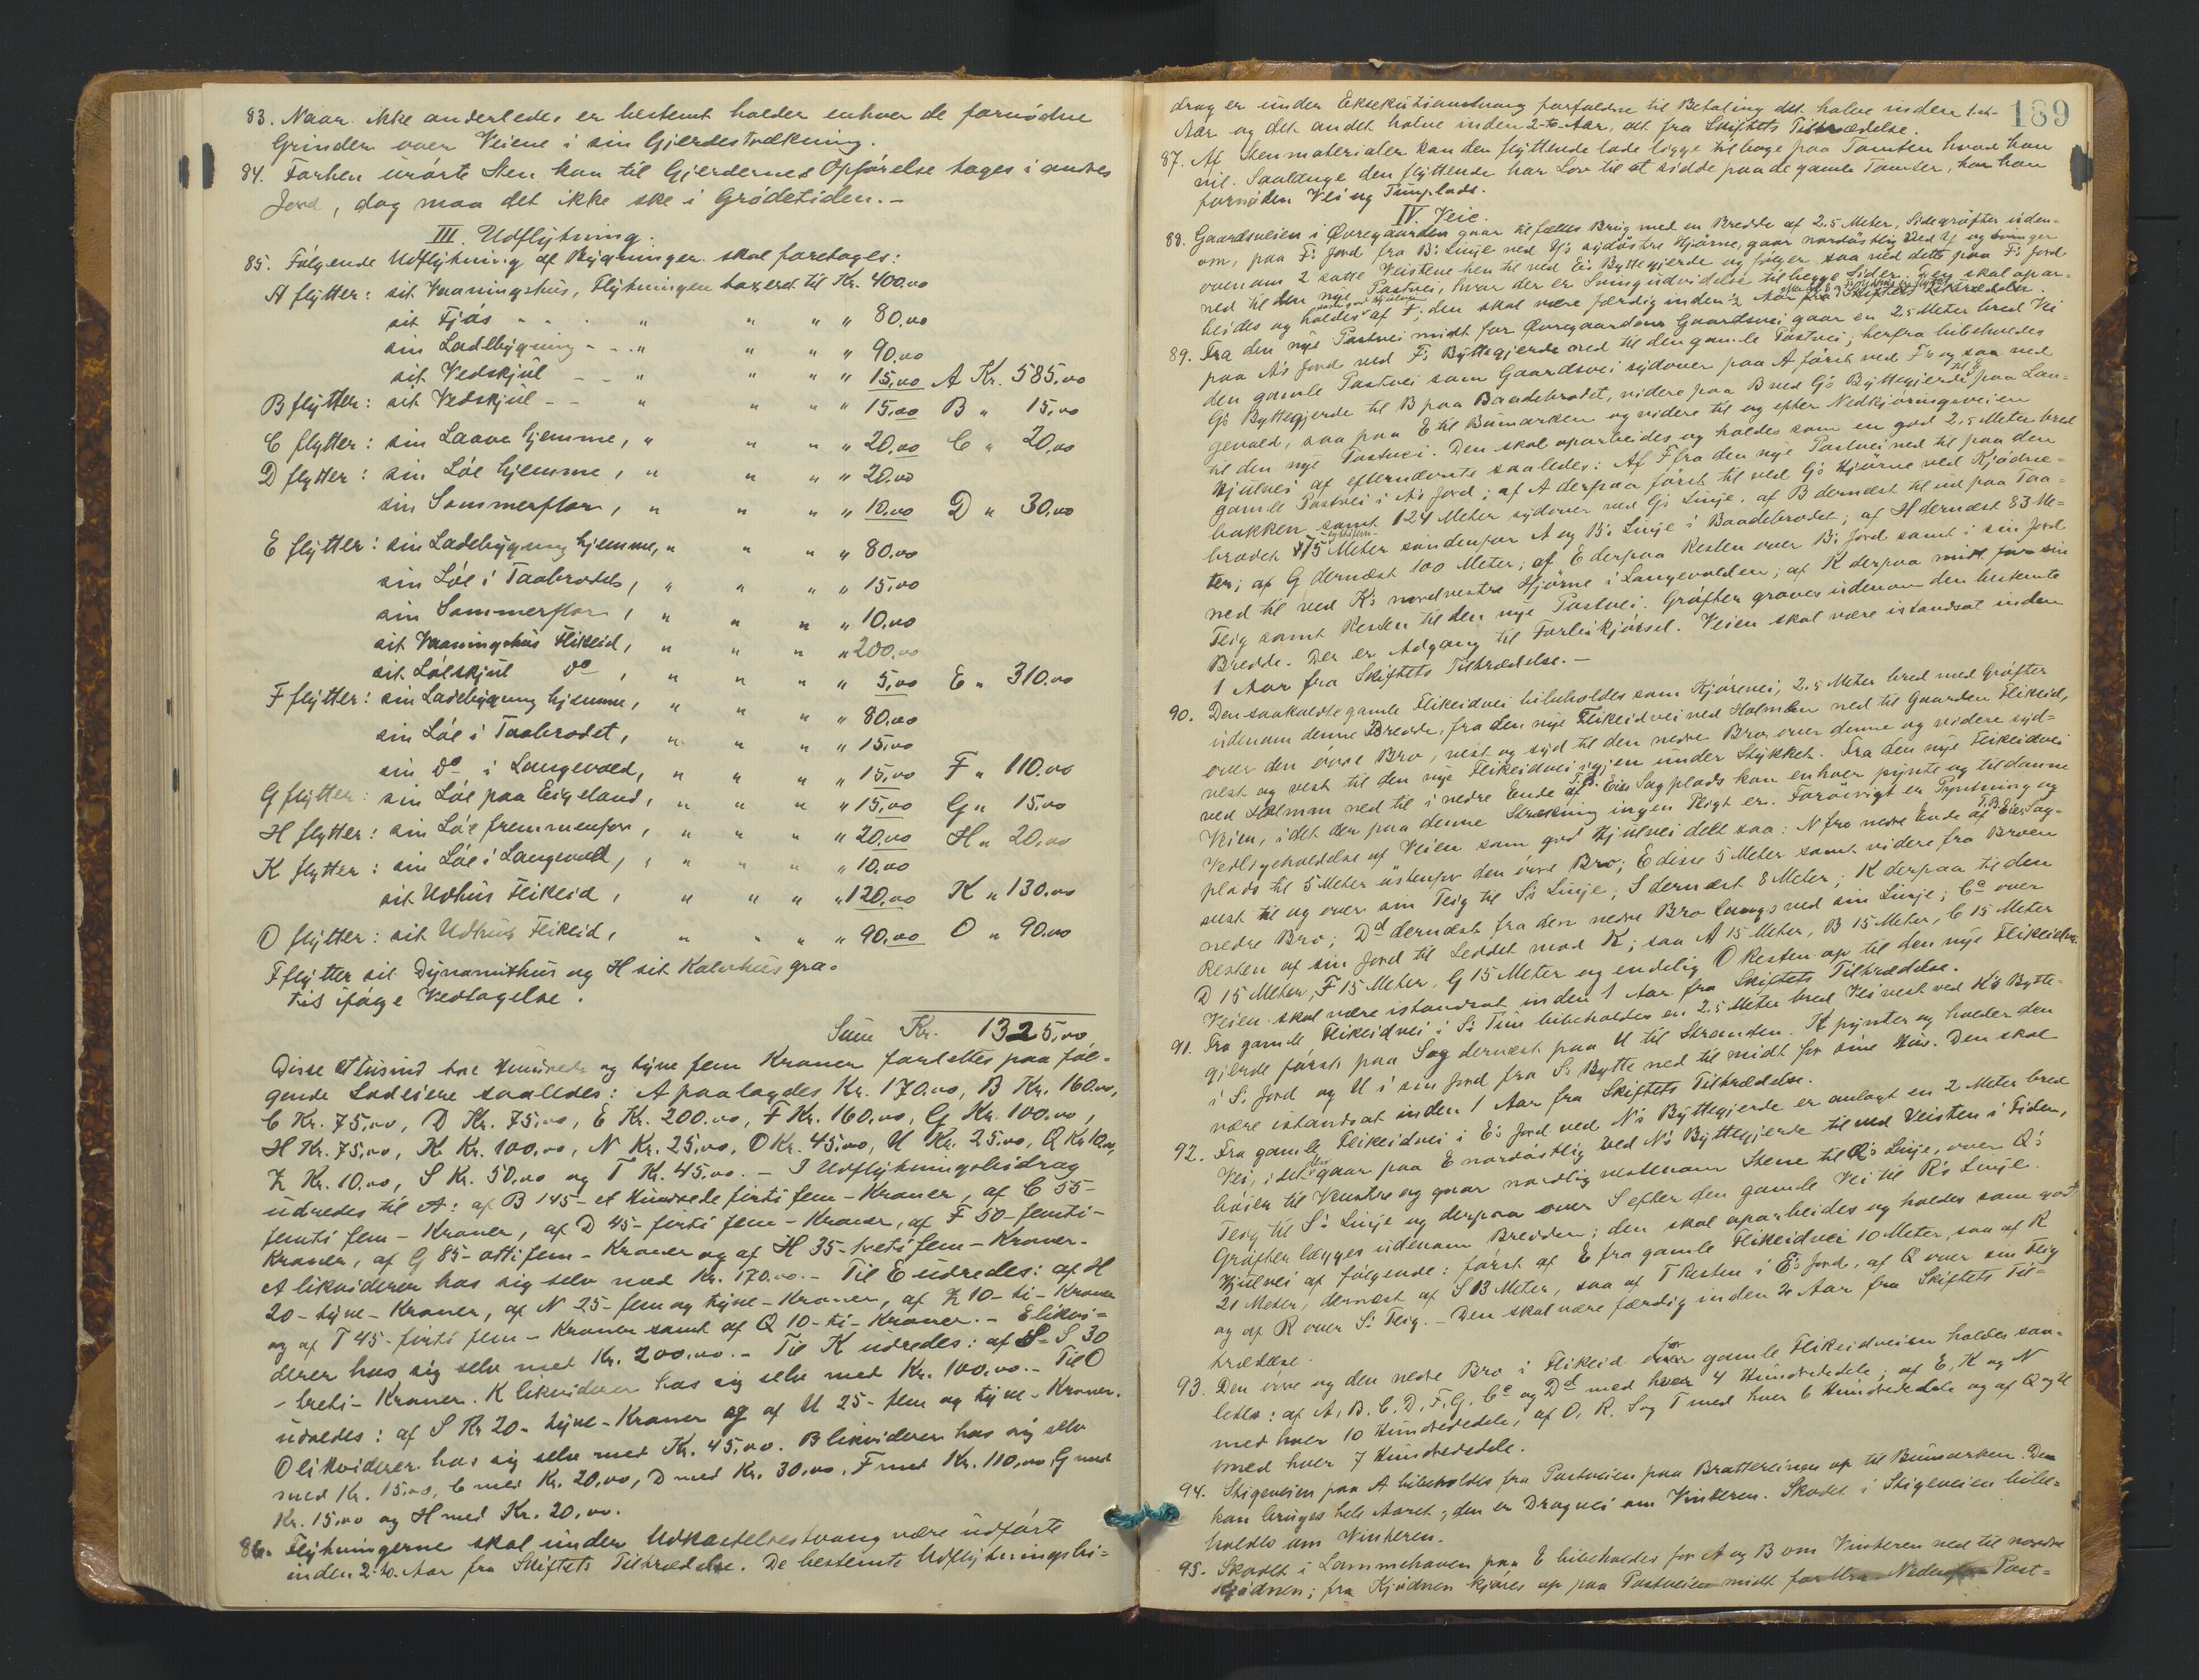 83. Naar ikke anderledes er bestemt holder enhver de fornødne
Grinder over Veiene i sin Gjerdestrækning.
84. Forhen urørte Sten kan til Gjerdernes Opførelse tages i andres
Jord, dog maa det ikke ske i Grødetiden. –
III. Udflytning.
85. Følgende Udflytning af Bygninger skal foretages:
A flytter: sit Vaaningshus, Flytningen taxeret til Kr. 400.00
sit Fjøs " " " " 80.00
sin Ladebygning " " " " 90.00
sit Vedskjul " " " " 15.00 A Kr. 585.00
B flytter: sit Vedskjul " " " " 15.00 B " 15.00
C flytter: sin Laave hjemme, " " " " 20.00 C " 20.00
D flytter: sin Løe hjemme, " " " " 20.00
sin Sommerflor, " " " " 10.00 D " 30.00
E flytter: sin Ladebygning hjemme, " " " " 80.00
sin Løe i Taabrodet, " " " " 15.00
sin Sommerflor, " " " " 10.00
sit Vaaningshus Flikeid, " " " " 200.00
sit Løeskjul do, " " " " 5.00 E " 310.00
F flytter: sin Ladebygning hjemme, " " " " 80.00
sin Løe i Taabrodet, " " " " 15.00
sin do i Langevold, " " " " 15.00 F " 110.00
G flytter: sin Løe paa Eigeland, " " " " 15.00 G " 15.00
H flytter: sin Løe fremmenfor, " " " " 20.00 H " 20.00
K flytter: sin Løe i Langevold, " " " " 10.00
sit Udhus Flikeid, " " " " 120.00 K " 130.00
O flytter: sit Udhus Flikeid, " " " " 90.00 O " 90.00
F flytter sit Dynamithus og H sit Kalvehus gra-
tis ifølge Vedtagelse.
Sum Kr. 1325.00
Disse et tusind tre Hundrede og tyve fem Kroner fordeles paa føl-
gende Lodeiere saaledes: A paalægdes Kr. 170.00, B Kr. 160.00,
C Kr. 75.00, D Kr. 75.00, E Kr. 200.00, F Kr. 160.00, G Kr. 100.00,
H Kr. 75.00, K Kr. 100.00, N Kr. 25.00, O Kr. 45.00, U Kr. 25.00, Q Kr. 10.00,
Z Kr. 10.00, S Kr. 50.00 og T Kr. 45.00. – I Udflytningsbidrag
udredes til A: af B 145 – et Hundrede firti fem – Kroner, af C 55 –
femti fem – Kroner, af D 45 – firti fem – Kroner, af F 50 – femti –
Kroner, af G 85 – otti fem – Kroner og af H 35 – treti fem – Kroner.
A likviderer hos sig selv med Kr. 170.00. – Til E udredes: af H
20 – tyve – Kroner, af N 25 – fem og tyve – Kroner, af Z 10 – ti – Kroner
og af T 45 – firti fem – Kroner samt af Q 10 – ti – Kroner. – E likvi-
derer hos sig selv med Kr. 200.00. – Til K udredes: af S 30
– treti – Kroner. K likviderer hos sig selv med Kr. 100.00. – Til O
udredes: af S Kr 20 – tyve – Kroner og af U 25 – fem og tyve – Kroner.
O likviderer hos sig selv med Kr. 45.00. B likviderer hos sig selv
med Kr. 15.00, C med Kr. 20.00, D med Kr. 30.00, F med Kr. 110.00, G med
Kr. 15.00 og H med Kr. 20.00.
86. Flytningerne skal under Udkastelsestvang være udførte
inden 2 – to – Aar fra Skiftets Tiltrædelse. De bestemte Udflytningsbi-
189
drag er under Eksekutionstvang forfaldne til Betaling det halve inden 1 – et –
Aar og det andet halve inden 2 – to – Aar, alt fra Skiftets Tiltrædelse.
87. Af Stenmaterialer kan den flyttende lade ligge tilbage paa Tomten hvad han
vil. Saalænge den flyttende har Lov til at sidde paa de gamle Tomter, har han
fornøden Vei og Tunplads.
IV. Veie.
88. Gaardsveien i Øvregaarden gaar til fælles Brug med en Bredde af 2.5 Meter, Sidegrøfter uden-
om, paa F's Jord fra B's Linje ved G's sydøstre Hjørne, gaar nordøstlig ved G og svinger
ovenom 2 satte Veistene hen til ved E's Byttegjerde og følger saa ved dette paa F's Jord
ned til den nye Postvei, hvor der er Svingudvidelse til begge Sider. Veien skal opar-
beides og holdes af F; den skal være færdig inden 2 Aar fra Skiftets Tiltrædelse.
89. Fra den nye Postvei midt for Øvregaardens Gaardsvei gaar en 2.5 Meter bred Vei
paa A's Jord ved F's Byttegjerde ned til den gamle Postvei; herfra bibeholdes
den gamle Postvei som Gaardsvei sydover paa A først ved F's og saa ved
G's Byttegjerde til B paa Baadebrodet, videre paa B ved G's Byttegjerde til E paa Lan-
gevold, saa paa E til Bumarken og videre til og efter Nedkjøringsveien
til den nye Postvei. Den skal oparbeides og holdes som en god 2.5 Meter bred
Hjulvei af efternævnte saaledes: Af F fra den nye Postvei ned til paa den
gamle Postvei i A's Jord; af A derpaa først til ved G's Hjørne ved Kjødne-
bakken samt 124 Meter sydover ved G's Linje, af B dernæst til ud paa Taa-
brodet 75 Meter søndenfor A og B's Linje i Baadebrodet; af H dernæst 83 Me-
ter; af G dernæst 100 Meter; af E derpaa Resten over B's Jord samt i sin Jord
ned til ved K's nordvestre Hjørne i Langevolden; af K derpaa midt for sin
Teig samt Resten til den nye Postvei. Grøfter graves udenom den bestemte
Bredde. Der er Adgang til Forbikjørsel. Veien skal være istandsat inden
1 Aar fra Skiftets Tiltrædelse. –
90. Den saakaldte gamle Flikeidvei bibeholdes som Kjørevei, 2.5 Meter bred med Grøfter
udenom denne Bredde, fra den nye Flikeidvei ved Holmen ned til Gaarden Flikeid,
over den øvre Bro, vest og syd til den nedre Bro, over denne og videre syd-
vest og vest til den nye Flikeidvei igjen under Stykket. Fra den nye Flikeidvei
ved Holmen ned til i nedre Ende af T.B. Eies Sagplads kan enhver pynte og tildanne
Veien, idet der paa denne Strækning ingen Pligt er. Forøvrigt er Pyntning og
Vedligeholdelse af Veien som god Hjulvei delt saa: N fra nedre Ende af T.B. Eies Sag-
plads til 5 Meter østenfor den øvre Bro; E disse 5 Meter samt videre fra Broen
vest til og over sin Teig til S's Linje; S dernæst 8 Meter; K derpaa til den
nedre Bro; Dd dernæst fra den nedre Bro langs ved sin Linje; Cc over
Resten af sin Jord til Leddet mod K; saa A 15 Meter, B 15 Meter, C 15 Meter
D 15 Meter, F 15 Meter, G 15 Meter og endelig O Resten op til den nye Flikeidvei.
Veien skal være istandsat inden 1 Aar fra Skiftets Tiltrædelse.
91. Fra gamle Flikeidvei i S's Tun bibeholdes en 2.5 Meter bred Vei vest ved K's Bytte-
gjerde først paa S og dernæst paa U til Stranden. K pynter og holder den
i S's Jord og U i sin Jord fra S's Bytte ned til midt for sine Hus. Den skal
være istandsat inden 1 Aar fra Skiftets Tiltrædelse.
92. Fra gamle Flikeidvei i E's Jord ved N's Byttegjerde er anlagt en 2 Meter bred
Vei, idet den gaar paa E nordøstlig ved N's Byttegjerde til ved Veisten i Siden,
bøier til Venstre og gaar nordlig vestenom Stene til Q's Linje, over Q's
Teig til S's Linje og derpaa over S efter den gamle Vei til R's Linje.
Grøfter lægges udenom Bredden; den skal oparbeides og holdes som god
Hjulvei af følgende: først af E fra gamle Flikeidvei 10 Meter, saa af R
21 Meter, dernæst af S 13 Meter, saa af T Resten i E's Jord, af Q over sin Teig
og af R over S's Teig. – Den skal være færdig inden 2 Aar fra Skiftets Til-
trædelse.
93. Den øvre og den nedre Bro i Flikeid for gamle Flikeidveien holdes saa-
ledes: af A, B, C, D, F, G, Cc og Dd med hver 4 Hundrededele; af E, K og N
med hver 10 Hundrededele, af O, R, S og T med hver 6 Hundrededele og af Q og U
med hver 7 Hundrededele.
94. Stigeveien paa A bibeholdes fra Postveien paa Bratterlinen op til Bumarken. Den
kan bruges hele Aaret; den er Dragvei om Vinteren. Skodet i Stigeveien bibe-
holdes om Vinteren.
95. Skodet i Lammehaven paa E bibeholdes for A og B om Vinteren ned til nordre
Kjødnen; fra Kjødnen kjøres op paa Postveien midt for Nedenfor Post-